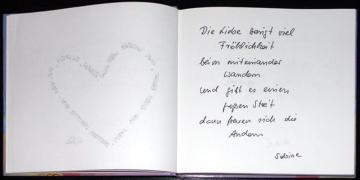 Die Liebe bringt viel
Fröhlichkeit
beim miteinander
wandern
Und gibt es einen
großen Streit
dann freuen sich die
Andern
Sabine